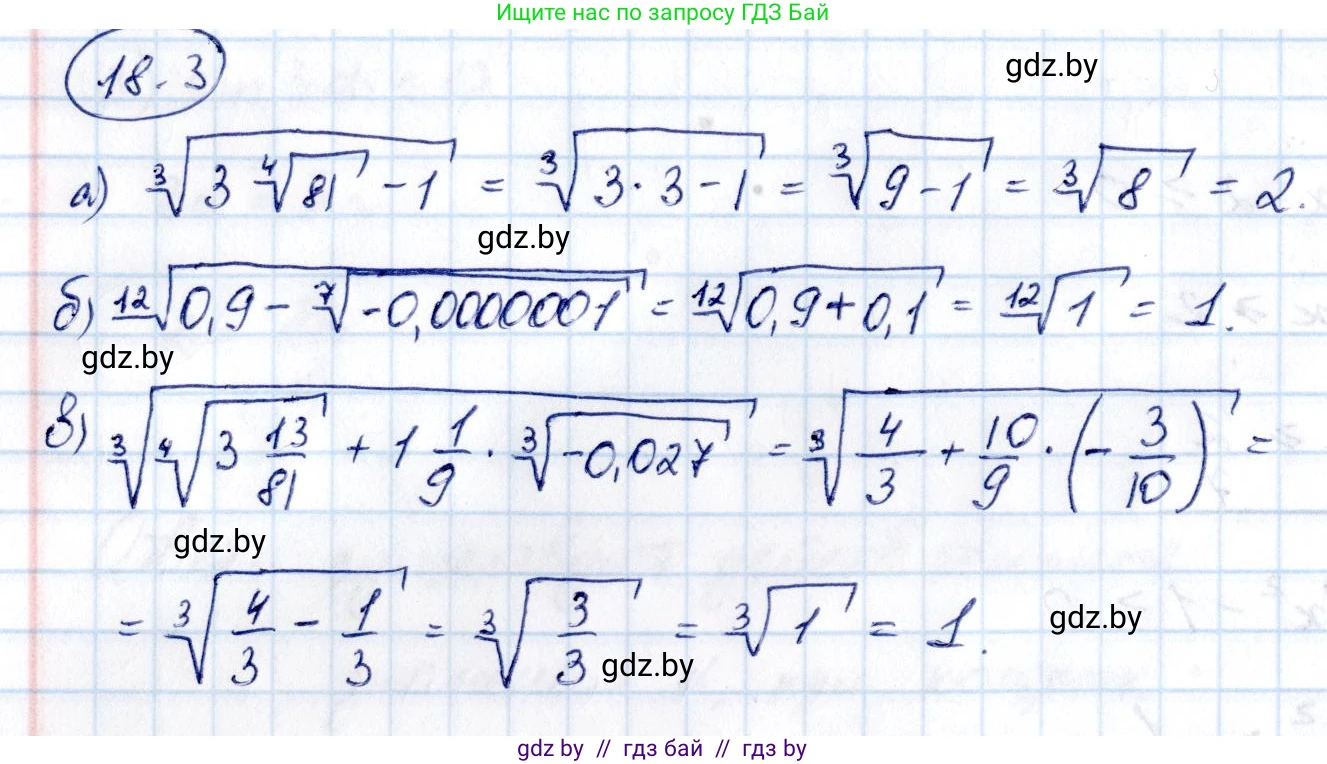 Ищите нас по запросу ГДЗ Бай
18-3
gdz.by
а) ∛(3 ∜81 − 1) = ∛(3·3−1) = ∛(9−1) = ∛8 = 2.
gdz.by
б) ¹²√(0,9 − ⁷√(-0,0000001)) = ¹²√(0,9+0,1) = ¹²√1 = 1.
gdz.by
в) ∛(∜(3 13/81) + 1 1/9 · ∛(-0,027)) = ∛(4/3 + 10/9 · (−3/10)) =
gdz.by
= ∛(4/3 − 1/3) = ∛(3/3) = ∛1 = 1.
gdz.by
gdz.by
gdz by // гдз бай // gdz by